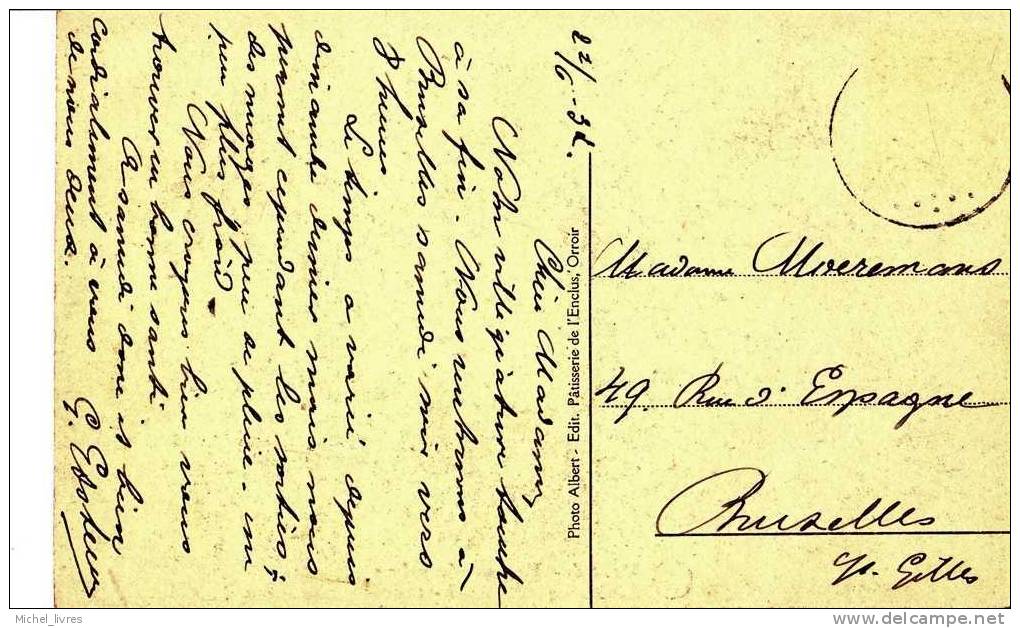 22/6-32.
Chère Madame,
Notre villégiature touche
à sa fin. Nous rentrons à
Bruxelles samedi soir vers
8 heures.
Le temps a varié depuis
dimanche dernier mais nous
permet cependant les sorties;
des nuages, peu de pluie - un
peu plus froid.
Nous croyons bien vous
trouver en bonne santé
A samedi donc et bien
cordialement à vous
de nous deux.
Photo Albert - Edit. Pâtisserie de l'Enclus, Orroir
Madame Moeremans
49. Rue d'Espagne
Bruxelles
St. Gilles
Michel_livres
delcampe.net